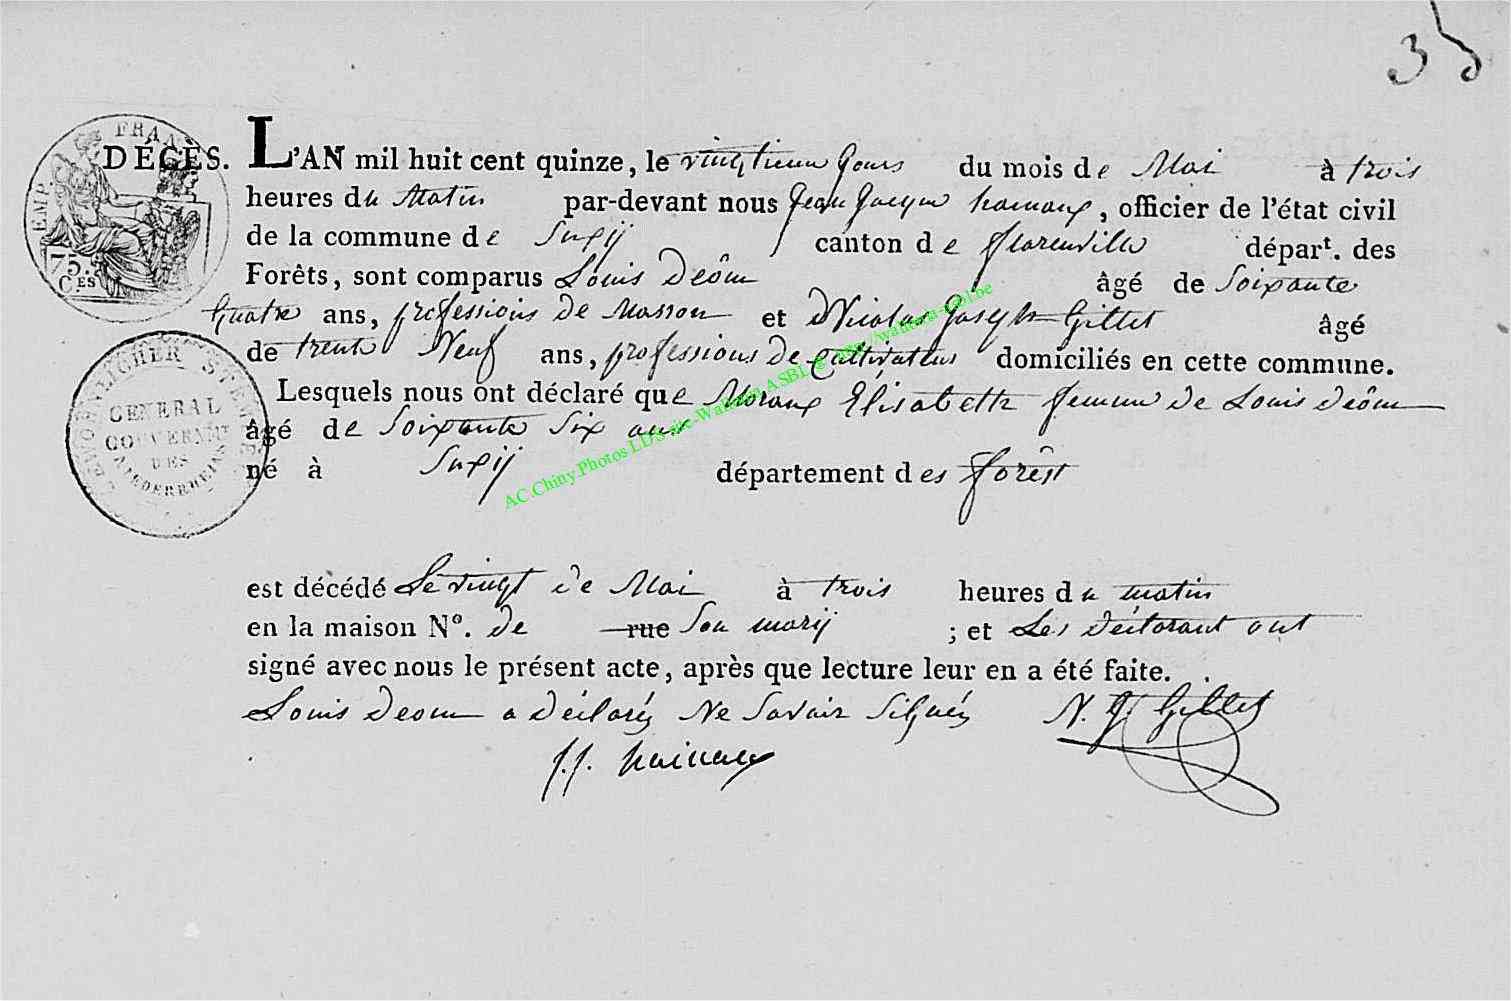 35
FRAN
DÉCÈS. L'AN mil huit cent quinze, le vingtieme Jours du mois de Mai à trois
EMP.
heures du Matin par-devant nous Jean Jacque hainaux, officier de l'état civil
de la commune de Suxij canton de florenville départ. des
75.
C.ES
Forêts, sont comparus Louis Deôm âgé de Soixante
Quatre ans, professions De Masson et Nicolas Joseph Gillet âgé
de trente Neuf ans, professions De Cultivateur domiciliés en cette commune.
Lesquels nous ont déclaré que Moraux Elisabeth femme De Louis Deôm
GENERAL
GOUVERNEMT
DES
NIEDERRHEINS
âgé de Soixante Six ans
né à Suxij département des forêst
AC.Chiny.Photos LDS site-Wallonia ASBL
est décédé Le vingt de Mai à trois heures du matin
en la maison N°. De rue Son marij ; et Les Déclarant ont
signé avec nous le présent acte, après que lecture leur en a été faite.
Louis Deom a Déclaréz Ne Savoir Signéz N. J. Gillet
J.J. hainaux